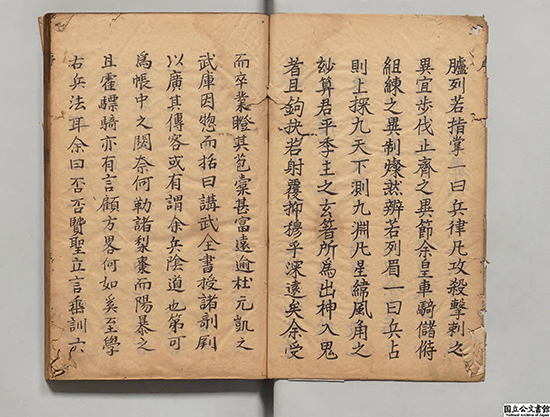 臚列若指掌一曰兵律凡攻殺擊刺之
異宜步伐止齊之異節余皇車騎儲偫
組練之異制燦然辨若列眉一曰兵占
則上探九天下測九淵凡星緯風角之
玅算君平季主之玄箸所為出神入鬼
者且鉤抉若射覆抑穆乎深遠矣余受
而卒業瞪其苞彙甚富遠逾杜元凱之
武庫因惣而括曰講武全書授諸剞劂
以廣其傳客或有謂余兵陰道也第可
為帳中之閟奈何勒諸梨棗而陽暴之
且霍驃騎亦有言顧方畧何如奚至學
古兵法耳余曰否否賢聖立言垂訓六
国立公文書館
National Archives of Japan